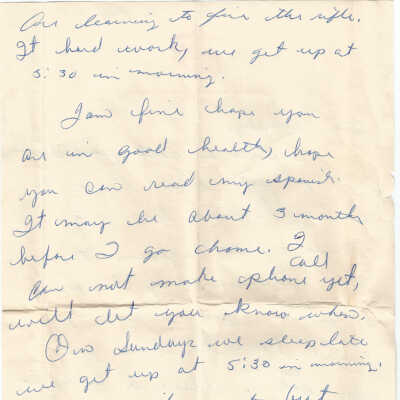 are learning to fire the rifle.
It hard work, we get up at
5:30 in morning.
I am fine hope you
are in good health, hope
you can read my spanish.
It may be about 3 months
before I go home. I
call
can not make phone yet,
will let you know when.
On Sundays we sleep late
we get up at 5:30 in morning.